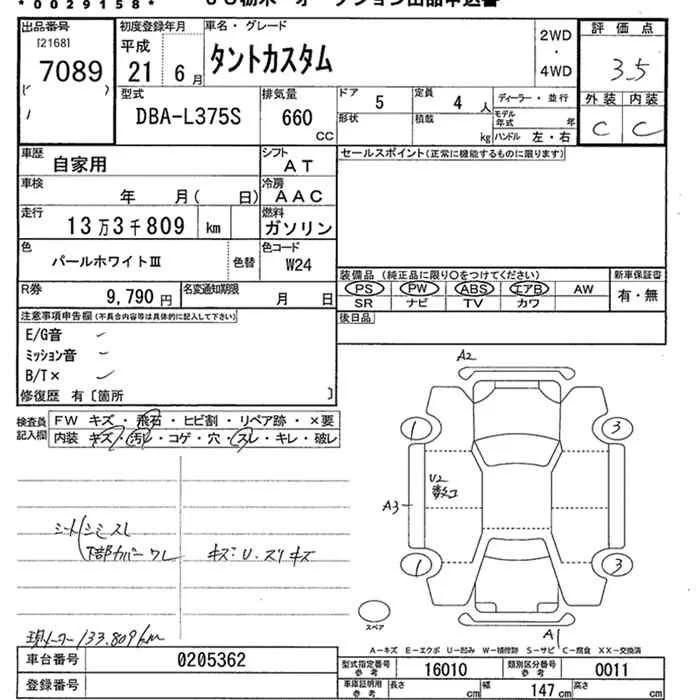 *0029158*
出品番号 初度登録年月 車名・グレード 評価点
[2168] 平成 2WD
7089 21 6月 タントカスタム ・ 35
( ) 4WD
外装 内装
型式 排気量 ドア 5 定員 4人 ディーラー・並行 C C
DBA-L375S 660 cc 形状 積載 kg モデル年式 年
ハンドル 左・右
車歴 自家用 シフト AT セールスポイント(正常に機能するものに限ります)
車検 年 月( 日) 冷房 AAC
走行 13万3千809 km 燃料 ガソリン
色 パールホワイトⅢ 色替 色コード W24
装備品(純正品に限り○をつけてください) 新車保証書
R券 9,790円 名変通知期限 月 日 PS PW ABS エアB AW 有・無
SR ナビ TV カワ
注意事項申告欄(不具合内容等は具体的に記入して下さい) 後日品
E/G音
ミッション音
B/T×
修復歴 有〔箇所 〕
検査員記入欄 FW キズ・飛石・ヒビ割・リペア跡・×要
内装 キズ・汚レ・コゲ・穴・スレ・キレ・破レ
A2
1 3
U2
数コ
A3
シート シミ スレ
下部カバーワレ キズ:U.スリキズ
1 3
スペア
A1
現メーター133.809km
A-キズ E-エクボ U-凹み W-補修跡 S-サビ C-腐食 XX-交換済
車台番号 0205362 型式指定番号 参考 16010 類別区分番号 参考 0011
登録番号 車庫証明用 参考 長さ cm 幅 147 cm 高さ cm